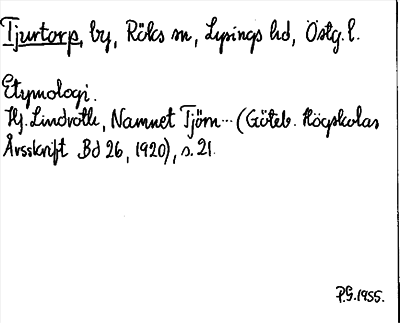 Tjurtorp, by, Röks sn, Lysings hd, Östg. l.
Etymologi.
Hj. Lindroth, Namnet Tjörn... (Göteb. Högskolas
Årsskrift Bd 26, 1920), s. 21.
P.G. 1955.